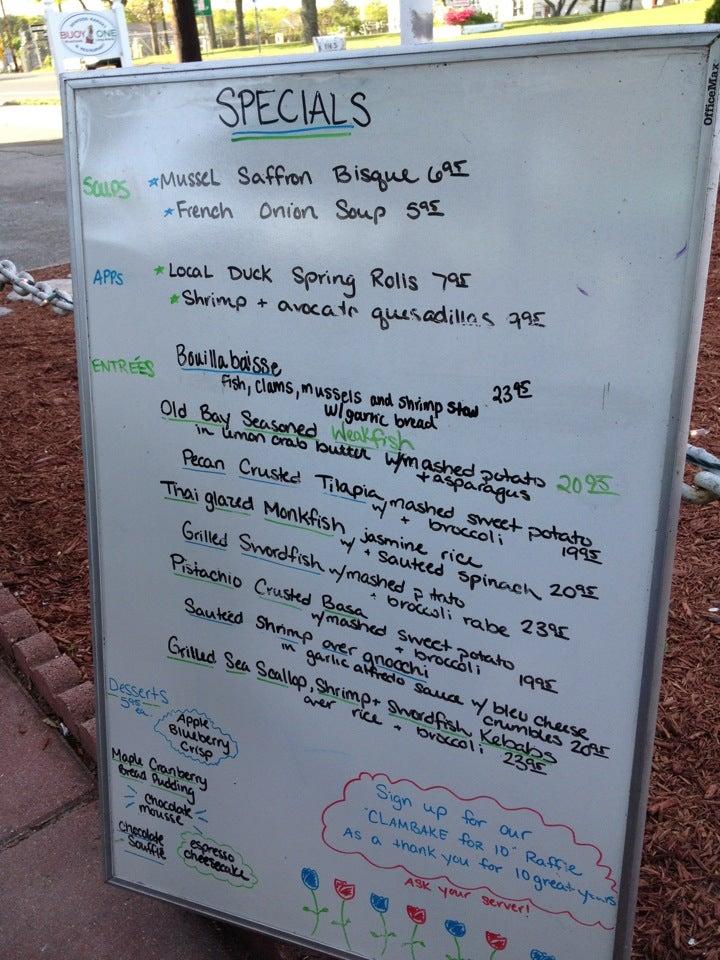 BUOY ONE
OfficeMax
SPECIALS
SOUPS
*Mussel Saffron Bisque 6.95
*French Onion Soup 5.95
APPS
*Local Duck Spring Rolls 7.95
*Shrimp + avocato quesadillas 7.95
ENTRÉES
Bouillabaisse
fish, clams, mussels and shrimp stew 23.95
w/garlic bread
Old Bay Seasoned Weakfish
in limon crab butter w/mashed potato
+ asparagus 20.95
Pecan Crusted Tilapia
w/ mashed sweet potato
+ broccoli 19.95
Thai glazed Monkfish
w/ jasmine rice
+ Sauteed spinach 20.95
Grilled Swordfish w/mashed potato
+ broccoli rabe 23.95
Pistachio Crusted Basa
w/mashed sweet potato
+ broccoli 19.95
Sauteed Shrimp over gnocchi
in garlic alfredo sauce w/ bleu cheese
crumbles 20.95
Grilled Sea Scallop, Shrimp + Swordfish Kebabs
over rice + broccoli 23.95
Desserts
5.95 ea.
Apple
Blueberry
Crisp
Maple Cranberry
Bread Pudding
chocolate
mousse
chocolate
Soufflé
espresso
cheesecake
Sign up for our
"CLAMBAKE for 10" Raffle
As a thank you for 10 great years
Ask your server!